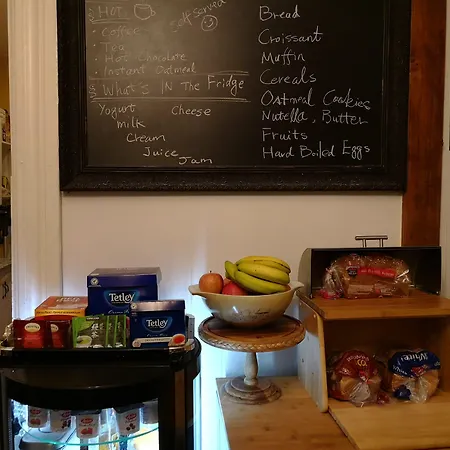 HOT
self served
• Coffee
• Tea
• Hot Chocolate
• Instant Oatmeal
What's In The Fridge
Yogurt
Cheese
Milk
Cream
Juice
Jam
Bread
Croissant
Muffin
Cereals
Oatmeal Cookies
Nutella, Butter
Fruits
Hard Boiled Eggs
Tetley
Tetley
White